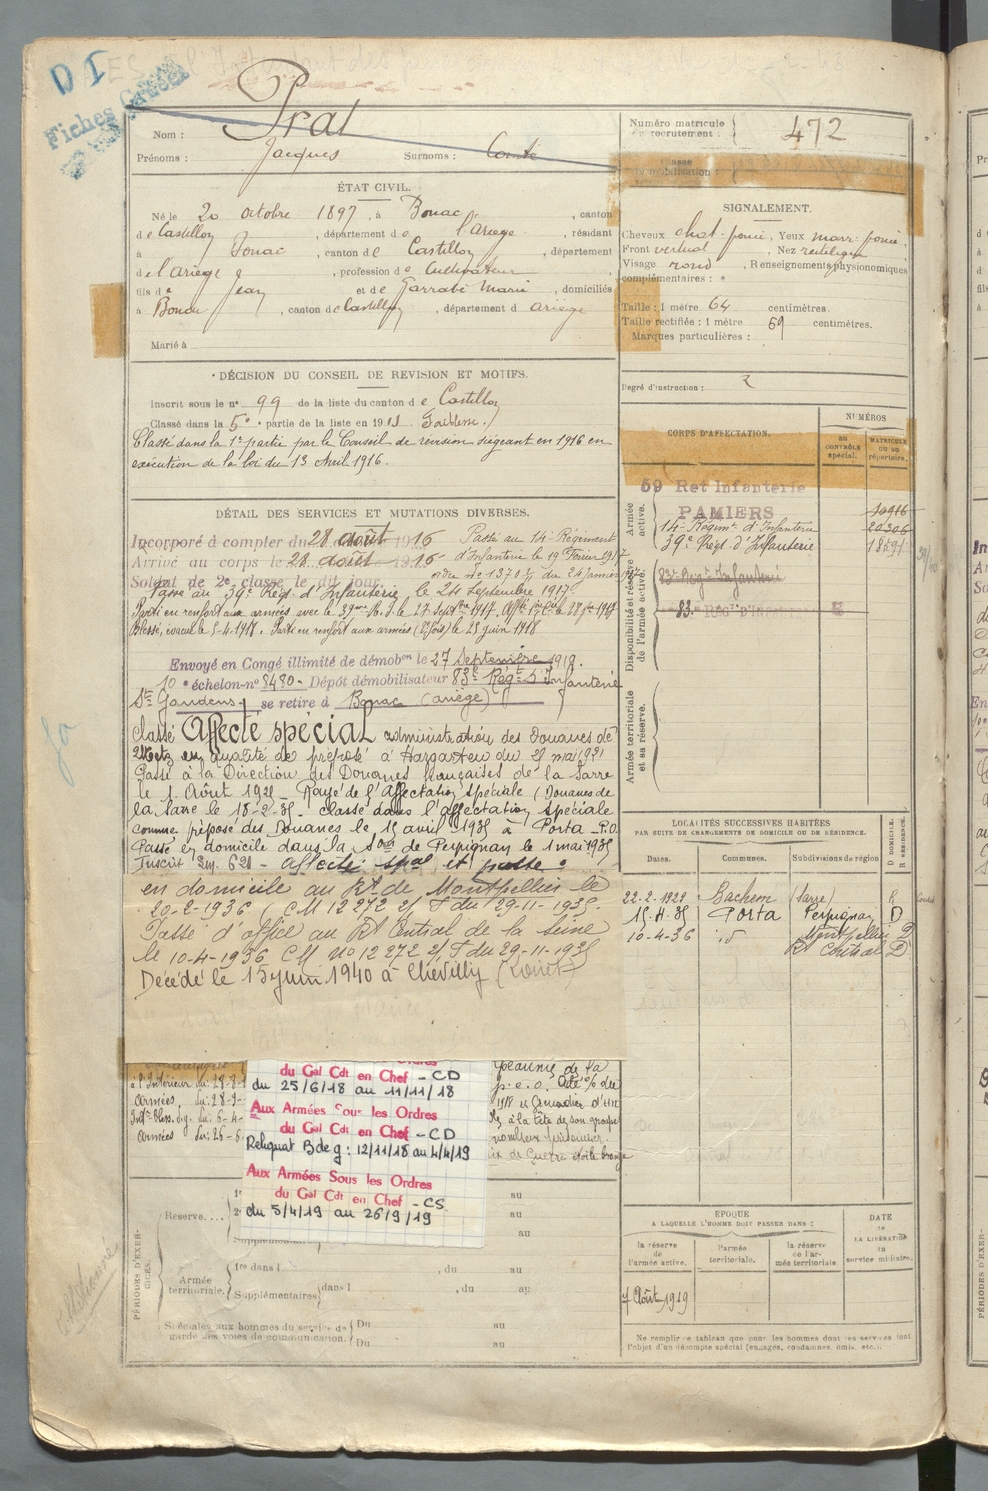 D I
Fiches
Nom : Prat
Prénoms : Jacques Surnoms : Comté
Numéro matricule du recrutement : 472
Classe de mobilisation :
ÉTAT CIVIL.
Né le 20 octobre 1897, à Bonac, canton
de Castillon, département de l'Ariège, résidant
à Bonac, canton de Castillon, département
de l'Ariège, profession de Cultivateur
fils de Jean et de Garrabé Marie, domiciliés
à Bonac, canton de Castillon, département d Ariège
Marié à
SIGNALEMENT.
Cheveux chat. foncé, Yeux marr. foncé,
Front vertical, Nez rectiligne
Visage rond, Renseignements physionomiques
complémentaires :
Taille : 1 mètre 64 centimètres.
Taille rectifiée : 1 mètre 69 centimètres.
Marques particulières :
Degré d'instruction : 2
DÉCISION DU CONSEIL DE REVISION ET MOTIFS.
Inscrit sous le n° 99 de la liste du canton de Castillon
Classé dans la 5e partie de la liste en 191 Faiblesse.
Classé dans la 1e partie par le Conseil de révision siégeant en 1916 en
exécution de la loi du 13 Avril 1916.
CORPS D'AFFECTATION.
NUMÉROS
au contrôle spécial.
MATRICULE ou au répertoire.
Armée active.
59 Ret Infanterie
PAMIERS 10916
14e Régimt d'Infanterie 20306
39e Régt d'Infanterie
Disponibilité et réserve de l'armée active.
83e Régt Infanterie
83e
Armée territoriale et sa réserve.
DÉTAIL DES SERVICES ET MUTATIONS DIVERSES.
Incorporé à compter du 28 août 1916 Passé au 14e Régiment
Arrivé au corps le 28 août 1916 d'Infanterie le 19 Février 1917
Soldat de 2e classe le dit jour. ordre n° 1370 du 24 Janvier 1917
Passé au 39e Régt d'Infanterie, le 24 Septembre 1917.
Parti en renfort aux armées avec le 39me R.I. le 27 Septbre 1917.
Blessé, évacué le 5-4-1918. Parti en renfort aux armées le 25 juin 1918
Envoyé en Congé illimité de démobon le 27 Septembre 1919.
10e échelon n° 8480 - Dépôt démobilisateur 83e Régt d'Infanterie
St Gaudens, se retire à Bonac (Ariège)
Classé Affecté spécial administration des Douanes de
Metz en qualité de préposé à Hargarten du 21 mai 1921
Passé à la Direction des Douanes françaises de la Sarre
le 1 Août 1921 - Rayé de l'Affectation spéciale (Douanes de
la Sarre le 18-2-35. classé dans l'affectation spéciale
comme préposé des Douanes le 15 avril 1935 à Porta P.O.
Passé en domicile dans la Son de Perpignan le 1 mai 1935
affecté spal et passé
en domicile au Rt de Montpellier le
20-2-1936 (CM 12272 2/T du 29-11-1935.
Passé d'office au Rt Central de la Seine
le 10-4-1936 CM N° 12272 2/T du 29-11-1935
Décédé le 15 juin 1940 à Chevilly (Loiret)
LOCALITÉS SUCCESSIVES HABITÉES
PAR SUITE DE CHANGEMENTS DE DOMICILE OU DE RÉSIDENCE.
Dates. Communes. Subdivisions de région D DOMICILE. R RÉSIDENCE.
22-2-1922 Bachem (Sarre) R
15-4-35 Porta Perpignan D
10-4-36 id Montpellier D
Rt Central D
à l'Intérieur
Armées
Armées
Aux Armées Sous les Ordres
du Gal Cdt en Chef - CD
du 25/6/18 au 11/11/18
Aux Armées Sous les Ordres
du Gal Cdt en Chef - CD
Reliquat B de g : 12/11/18 au 4/4/19
Aux Armées Sous les Ordres
du Gal Cdt en Chef - CS
du 5/4/19 au 26/9/19
à la tête de son groupe
de Guerre étoile bronze
PÉRIODES D'EXERCICES.
Réserve.... au
au
au
Armée territoriale.
1re dans l , du au
Supplémentaires dans l , du au
Spéciales aux hommes du service de garde des voies de communication. Du au
Du au
EPOQUE
A LAQUELLE L'HOMME DOIT PASSER DANS :
la réserve de l'armée active.
l'armée territoriale.
la réserve de l'armée territoriale
DATE de LA LIBÉRATION du service militaire.
7 Août 1919
Ne remplir ce tableau que pour les hommes dont les services font
l'objet d'un décompte spécial (engagés, condamnés, omis, etc.).